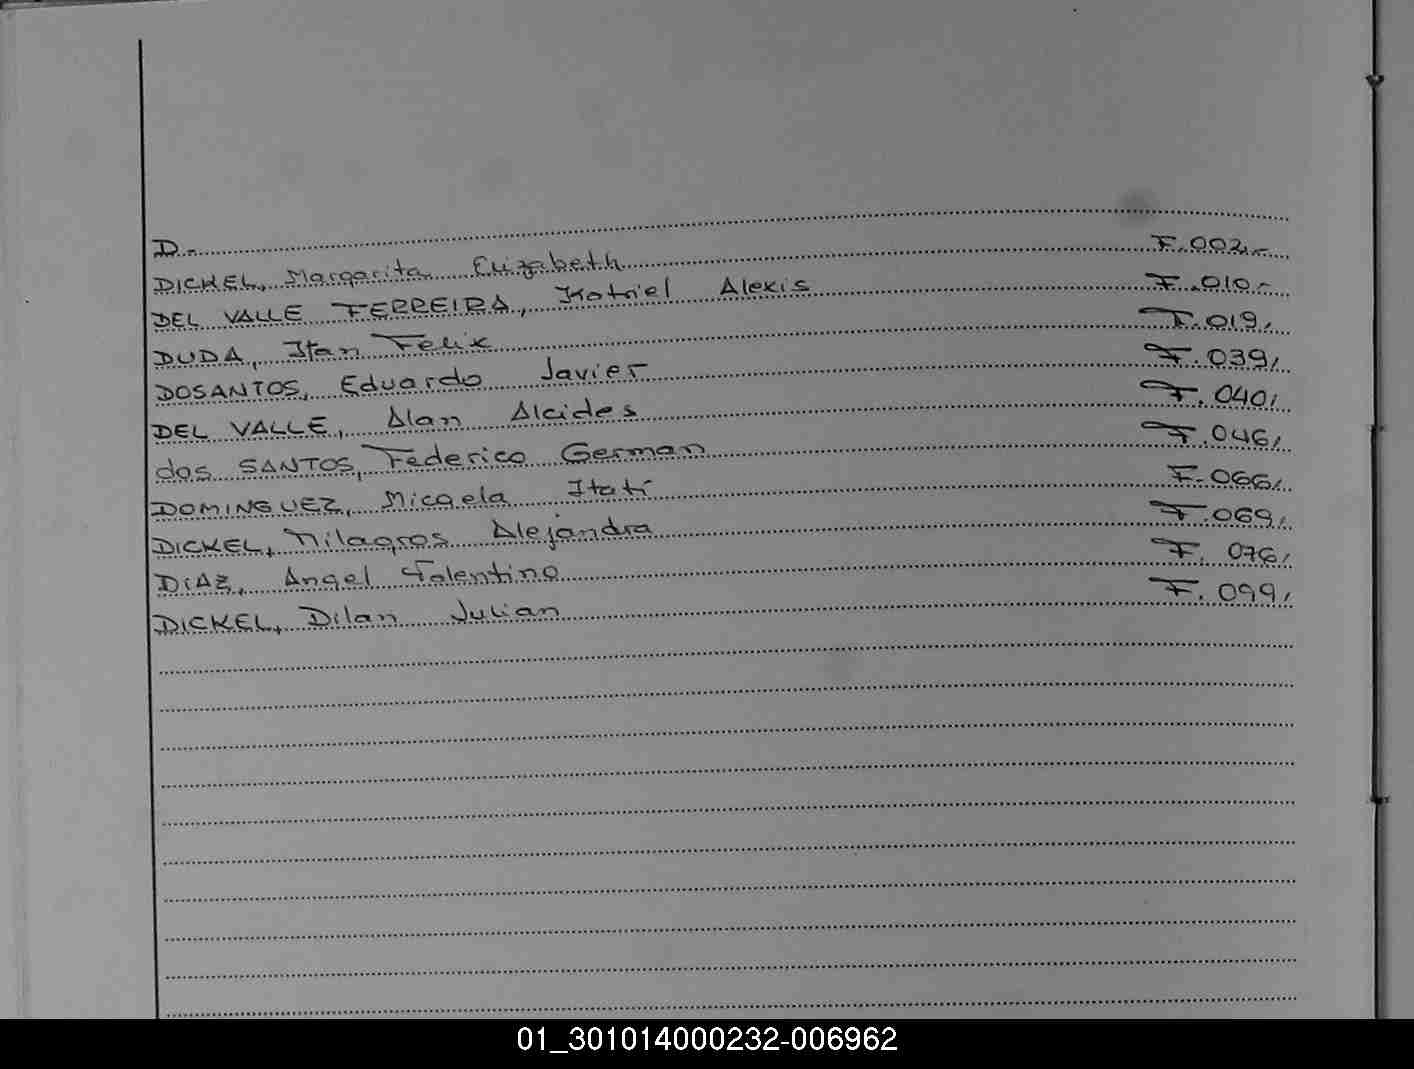 D.-
DICKEL, Margarita Elizabeth F.002.-
DEL VALLE FERREIRA, Katriel Alexis F.010.-
DUDA, Itan Felix F.019,
DOSANTOS, Eduardo Javier F.039,
DEL VALLE, Alan Alcides F.040,
dos SANTOS, Federico German F.046,
DOMINGUEZ, Micaela Itatí F.066,
DICKEL, Milagros Alejandra F.069,
DIAZ, Angel Valentino F. 076,
DICKEL, Dilan Julian F. 099,
01_301014000232-006962